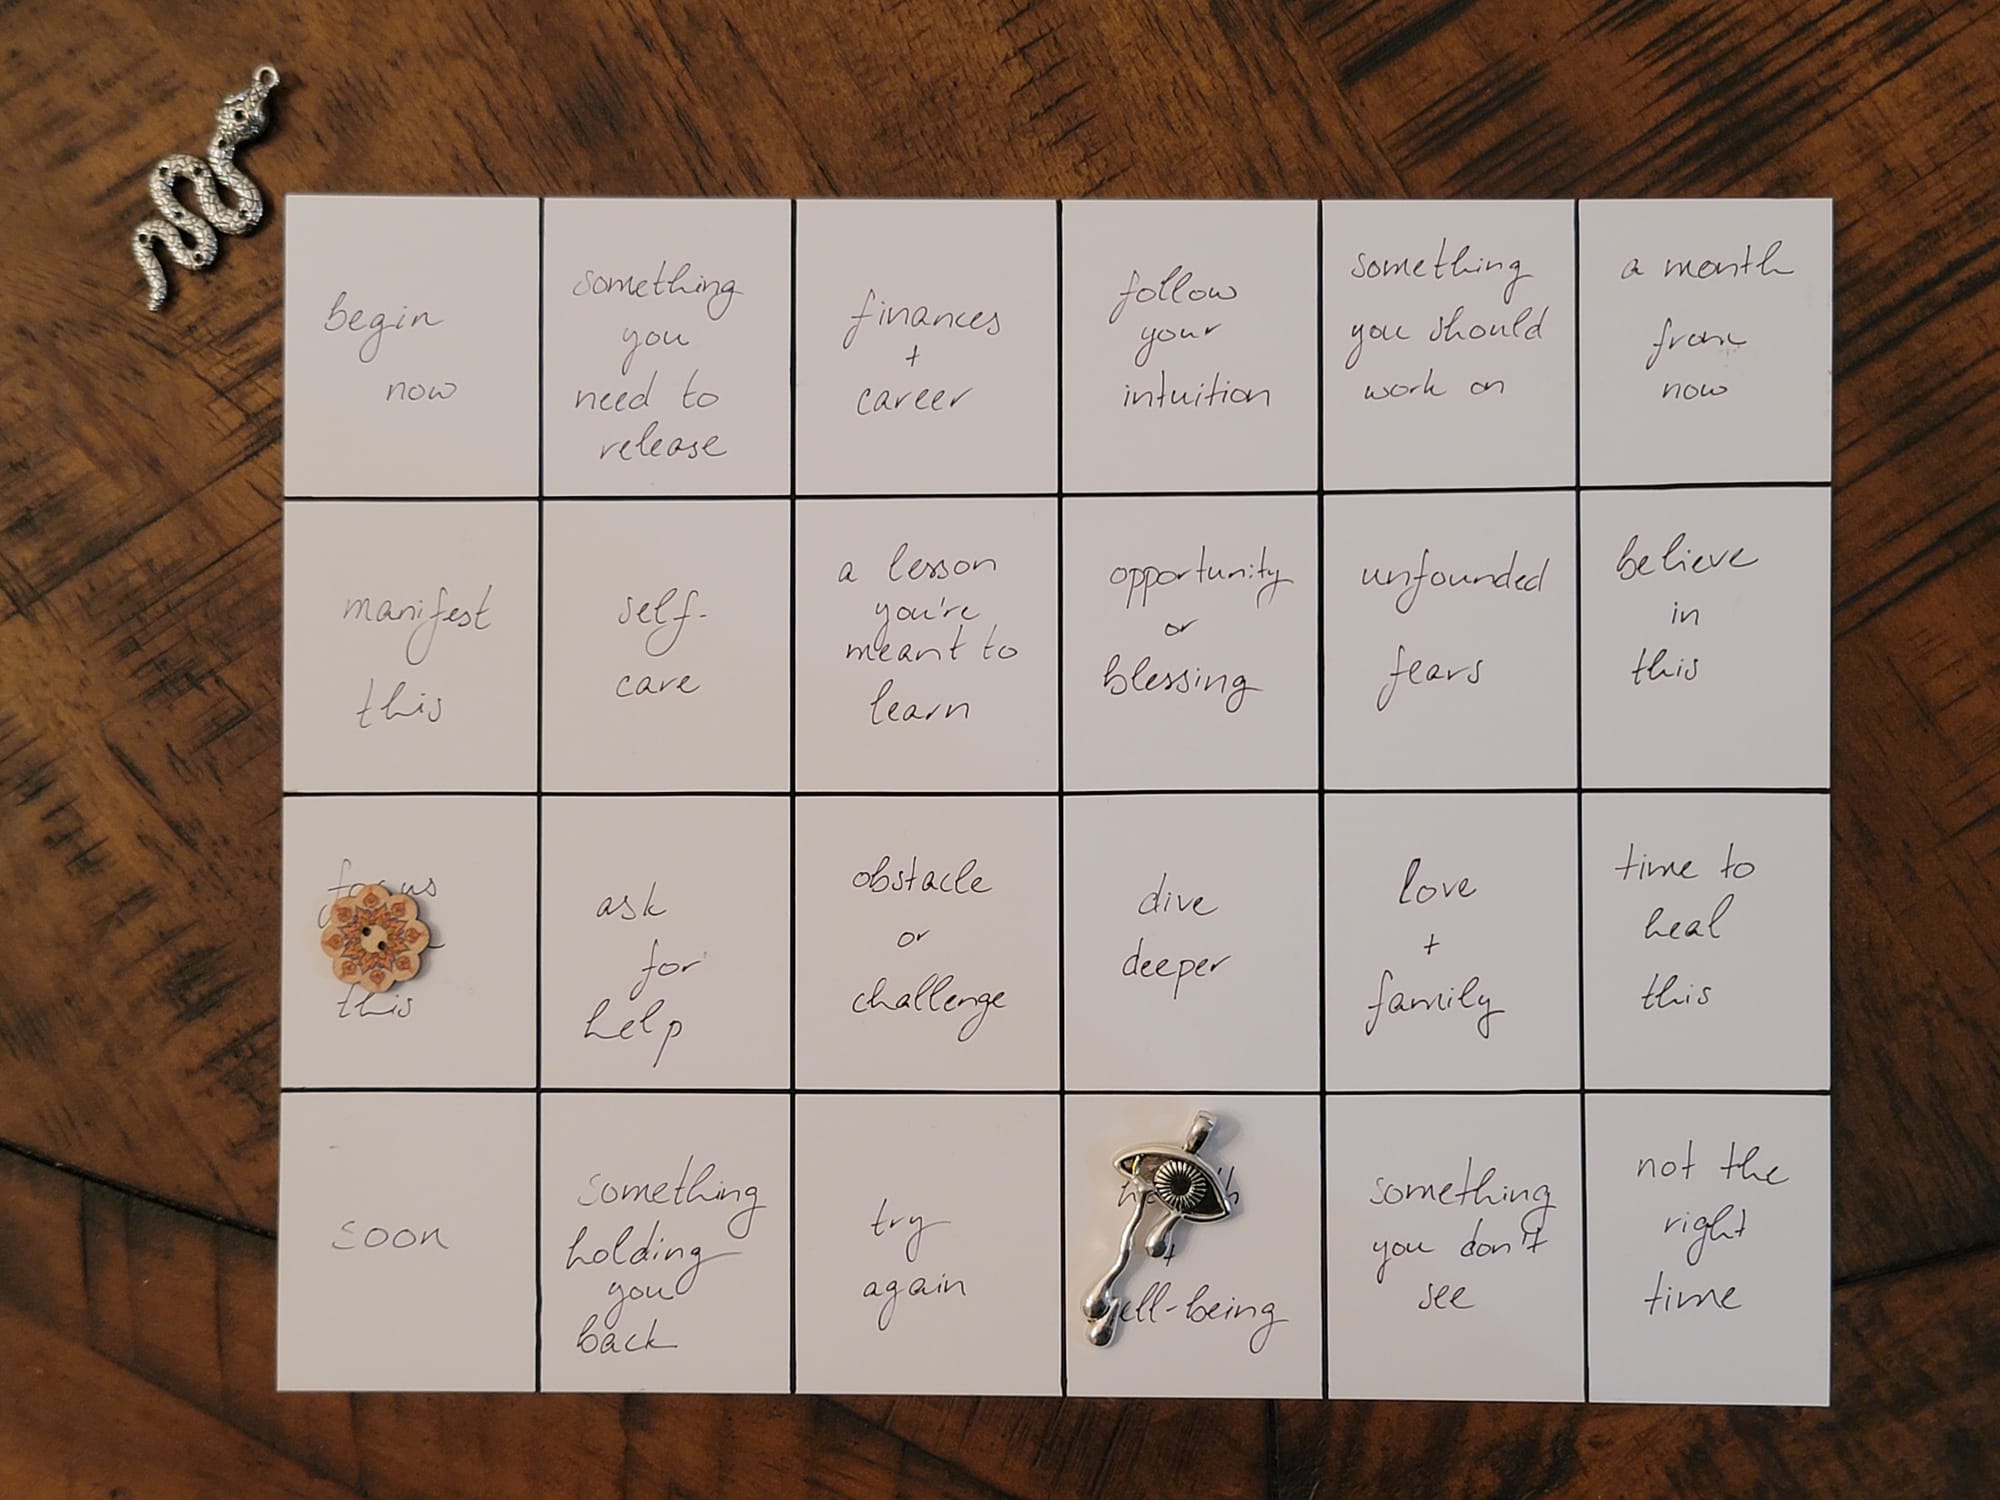 begin
now
something
you
need to
release
finances
+
career
follow
your
intuition
something
you should
work on
a month
from
now
manifest
this
self-
care
a lesson
you're
meant to
learn
opportunity
or
blessing
unfounded
fears
believe
in
this
this
ask
for
help
obstacle
or
challenge
dive
deeper
love
+
family
time to
heal
this
soon
something
holding
you
back
try
again
+
something
you don't
see
not the
right
time